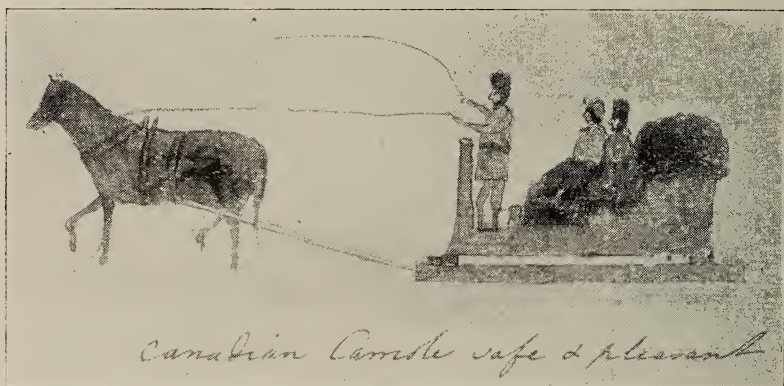 Canadian Cariole safe & pleasant